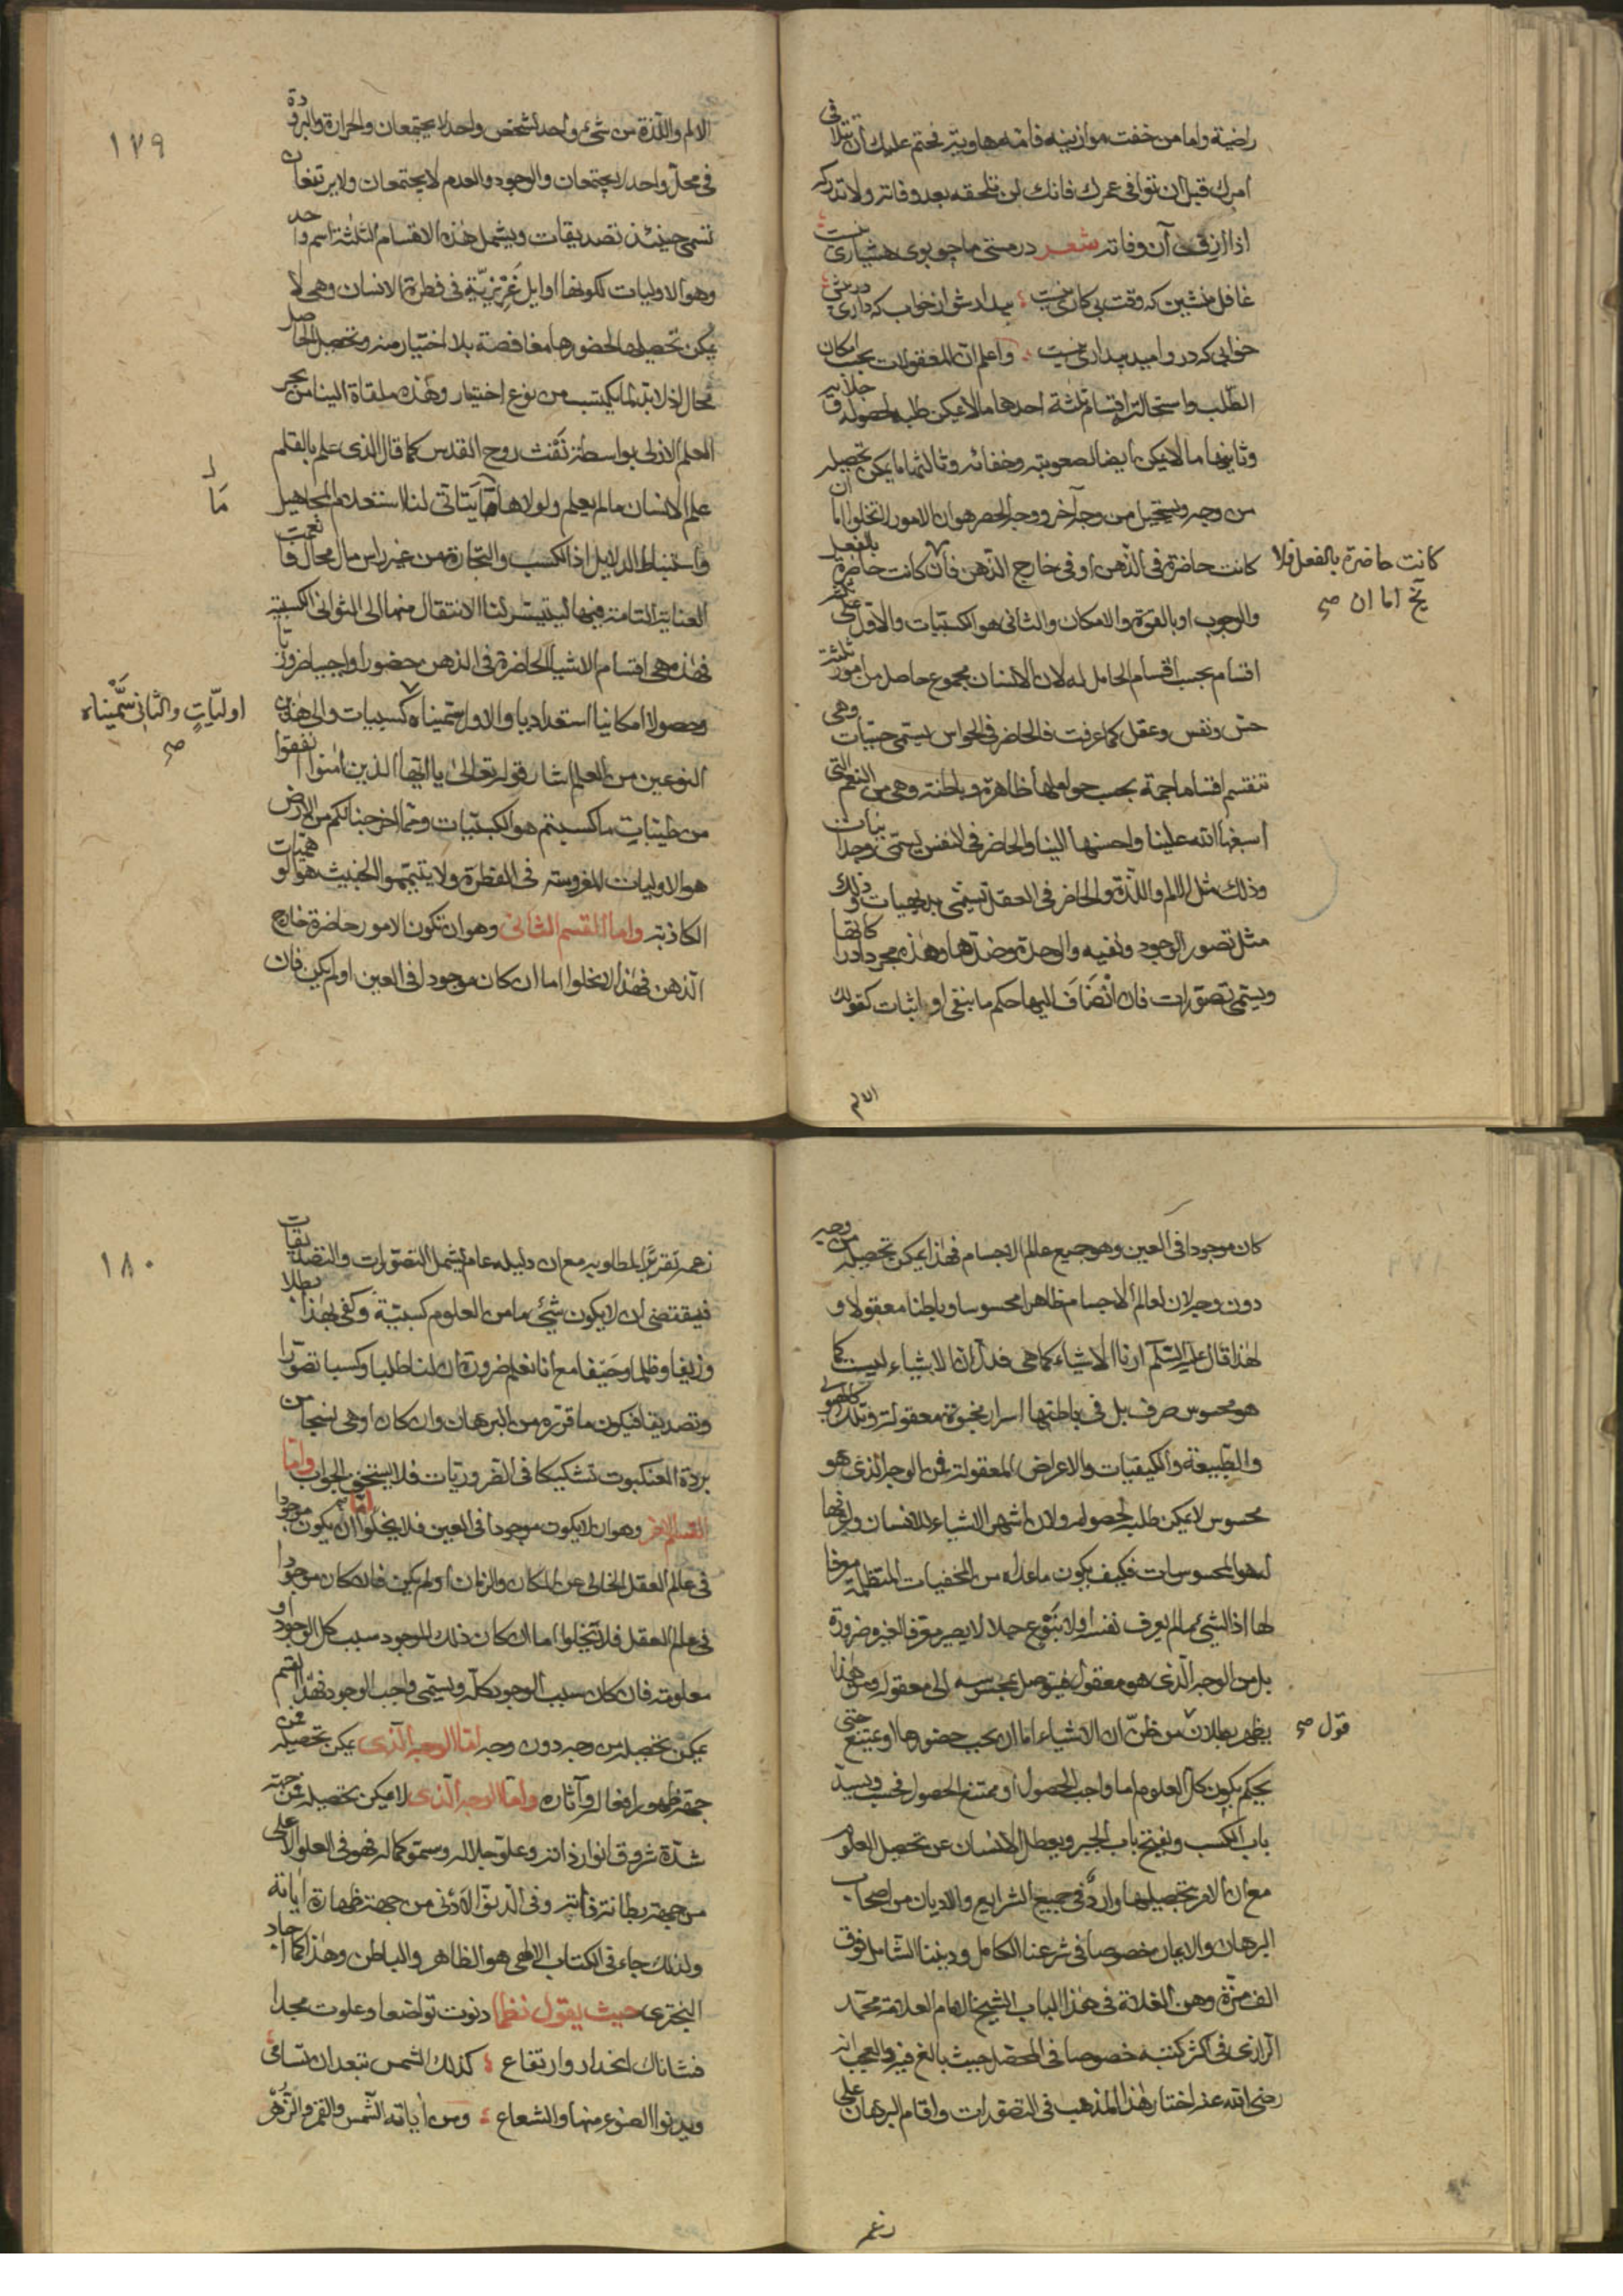 راضية واما من خفت موازينه فامه هاوية فحتم عليك أن تتلافى
امرك قبل ان توافى عمرك فانك لن تلحقه بعد وفاته ولا تدركه
اذا ازف آن وفاته شعر در مستى ما چو بوى هشيارى نيست
غافل منشين كه وقت بى كارى نيست بيدار شو از خواب كه در پيش دارى
خوابى كه در و اميد بيدارى نيست واعلم ان المعقولات بحسب امكان
الطلب واستحالته اقسام ثلثة احدها ما لا يمكن طلبه لحصوله وجلائيه
وثانيها ما لا يمكن ايضا لصعوبته وخفائه وثالثها ما يمكن تحصيله
من وجه ويستحيل من وجه آخر ووجه الحصر هو ان الامور لا تخلوا اما ان
كانت حاضرة فى الذهن او فى خارج الذهن فان كانت حاضرة بالفعل
كانت حاضرة بالفعل فلا
يخ اما ان صح
والوجوب او بالقوة والامكان والثانى هو الكسبيات والاول على
اقسام بحسب اقسام الحامل له لان الانسان مجموع حاصل من امور ثلثة
حس ونفس وعقل كما عرفت فالحاضر فى الحواس يسمى حسيات وهى
تنقسم اقساما جمة بحسب حواملها ظاهرة وباطنة وهى من النعم التى
اسبغها الله علينا واحسنها الينا والحاضر فى النفس يسمى وجدانيات
وذلك مثل الالم واللذة والحاضر فى العقل تسمى بديهيات وذلك
مثل تصور الوجود ونفيه والوحدة وضدها وهذه مجرد ادراكاتها
ويسمى تصورات فان انضاف اليها حكم ما بنفى او اثبات كقولك
الالم
١٧٩
الالم واللذة من شىء واحد لشخص واحد لا يجتمعان والحرارة والبرودة
فى محل واحد لا يجتمعان والوجود والعدم لا يجتمعان ولا يرتفعان
تسمى حينئذ تصديقات ويشمل هذه الاقسام الثلثة اسم واحد
وهو الاوليات لكونها اوايل غريزية فى فطرة الانسان وهى لا
يمكن تحصيلها لحضورها مغافصة بلا اختيار منه وتحصيل الحاصل
محال اذ لا بد لما يكتسب من نوع اختيار وهذه ملقاة الينا من بحر
العلم الازلى بواسطة نفث روح القدس كما قال الذى علم بالقلم
علم الانسان ما لم يعلم ولولاها ما يتاتى لنا استعلام المجاهيل
لـ
ما
واستنباط الدلايل اذ الكسب والتجارة من غير راس مال محال فانعمت
العناية التامة بها ليتيسر لنا الانتقال منها الى الثوانى الكسبية
فهذه هى اقسام الاشياء الحاضرة فى الذهن حضورا واجبيا ضروريا
وحصولا امكانيا استعداديا والاول سميناه كسبيات والى هذين
اوليات والثانى سميناه
صح
النوعين من العلم اشار قوله تعالى يا ايها الذين امنوا انفقوا
من طيبات ما كسبتم هو الكسبيات ومما اخرجنا لكم من الارض
هو الاوليات المغروسة فى الفطرة ولا يتيمموا الخبيث هو الوهميات
الكاذبة واما القسم الثانى وهو ان تكون الامور حاضرة خارج
الذهن فهذا لا يخلوا اما ان كان موجودا فى العين او لم يكن فان
كان موجودا فى العين وهو جميع عالم الاجسام فهذا يمكن تحصيله من وجه
دون وجه لان لعالم الاجسام ظاهرا محسوسا وباطنا معقولا و
لهذا قال عليه السلم ارنا الاشياء كما هى فدل ان الاشياء ليست كما
هو محسوس صرف بل فى باطنها اسرار مخبوة معقولة وتلك كالهيولى
والطبيعة والكيفيات والاعراض المعقولة فمن الوجه الذى هو
محسوس لا يمكن طلبه لحصوله ولان اشهر الاشياء للانسان واعرفها
له هو المحسوسات فكيف يكون ما عداه من الخفيات المتظلمة معرفا
لها اذ الشىء ما لم يعرف نفسه اولا بنوع حملا لا يصير معرفا لغيره ضرورة
بل من الوجه الذى هو معقول فيتوصل بمحسوسه الى معقوله ومن هذا
يظهر بطلان من ظن ان الاشياء اما ان يجب حضورها او يمتنع حتى
قول صح
يحكم بكون كل العلوم اما واجب الحصول او ممتنع الحصول فحسب ويسد
باب الكسب ويفتح باب الجبر ويعطل الانسان عن تحصيل العلوم
مع ان الامر بتحصيلها وارد فى جميع الشرايع والاديان من اصحاب
البرهان والايمان خصوصا فى شرعنا الكامل وديننا الشامل فوق
الف مرة وهن الغلاة فى هذا الباب الشيخ الامام العلامة محمد
الرازى فى اكثر كتبه خصوصا فى المحصل حيث بالغ فيه والعجب انه
رضى الله عنه اختار هذا المذهب فى التصورات واقام البرهان على
زعمه
١٨٠
زعمه تقريرا لمطلوبه مع ان دليله عام يشمل التصورات والتصديقات
فيقتضى ان لا يكون شىء ما من العلوم كسبية وكفى بهذا بطلانا
وزيفا وظلما وحيفا مع انا نعلم ضرورة ان لنا طلبا وكسبا تصورا
وتصديقا فيكون ما قرره من البرهان وان كان اوهى نسجا من
بردة العنكبوت تشكيكا فى الضروريات فلا يستحق الجواب واما
القسم الاخر وهو ان لا يكون موجودا فى العين فلا يخلوا اما ان يكون موجودا
فى عالم العقل الخالى عن المكان والزمان او لم يكن فان كان موجودا
فى عالم العقل فلا يخلوا اما ان كان ذلك الموجود سبب كل الوجود او
معلوله فان كان سبب الوجود كله ويسمى واجب الوجود فهذا القسم
يمكن تحصيله من وجه دون وجه اما الوجه الذى يمكن تحصيله فمن
جهة ظهور افعاله وآثاره واما الوجه الذى لا يمكن تحصيله فمن جهة
شدة شروق انوار ذاته وعلو جلاله وسمو كماله فهو فى العلو الاعلى
من جهة بطانة ذاته وفى الدنو الادنى من جهة ظهارة اياته
ولذلك جاء فى الكتاب الالهى هو الظاهر والباطن وهذا كما اجاد
البخترى حيث يقول نظما دنوت تواضعا وعلوت مجدا
فشاناك انحدار وارتفاع كذلك الشمس تبعد ان تسامى
ويدنوا الضوء منها والشعاع ومن اياته الشمس والقمر والزهر